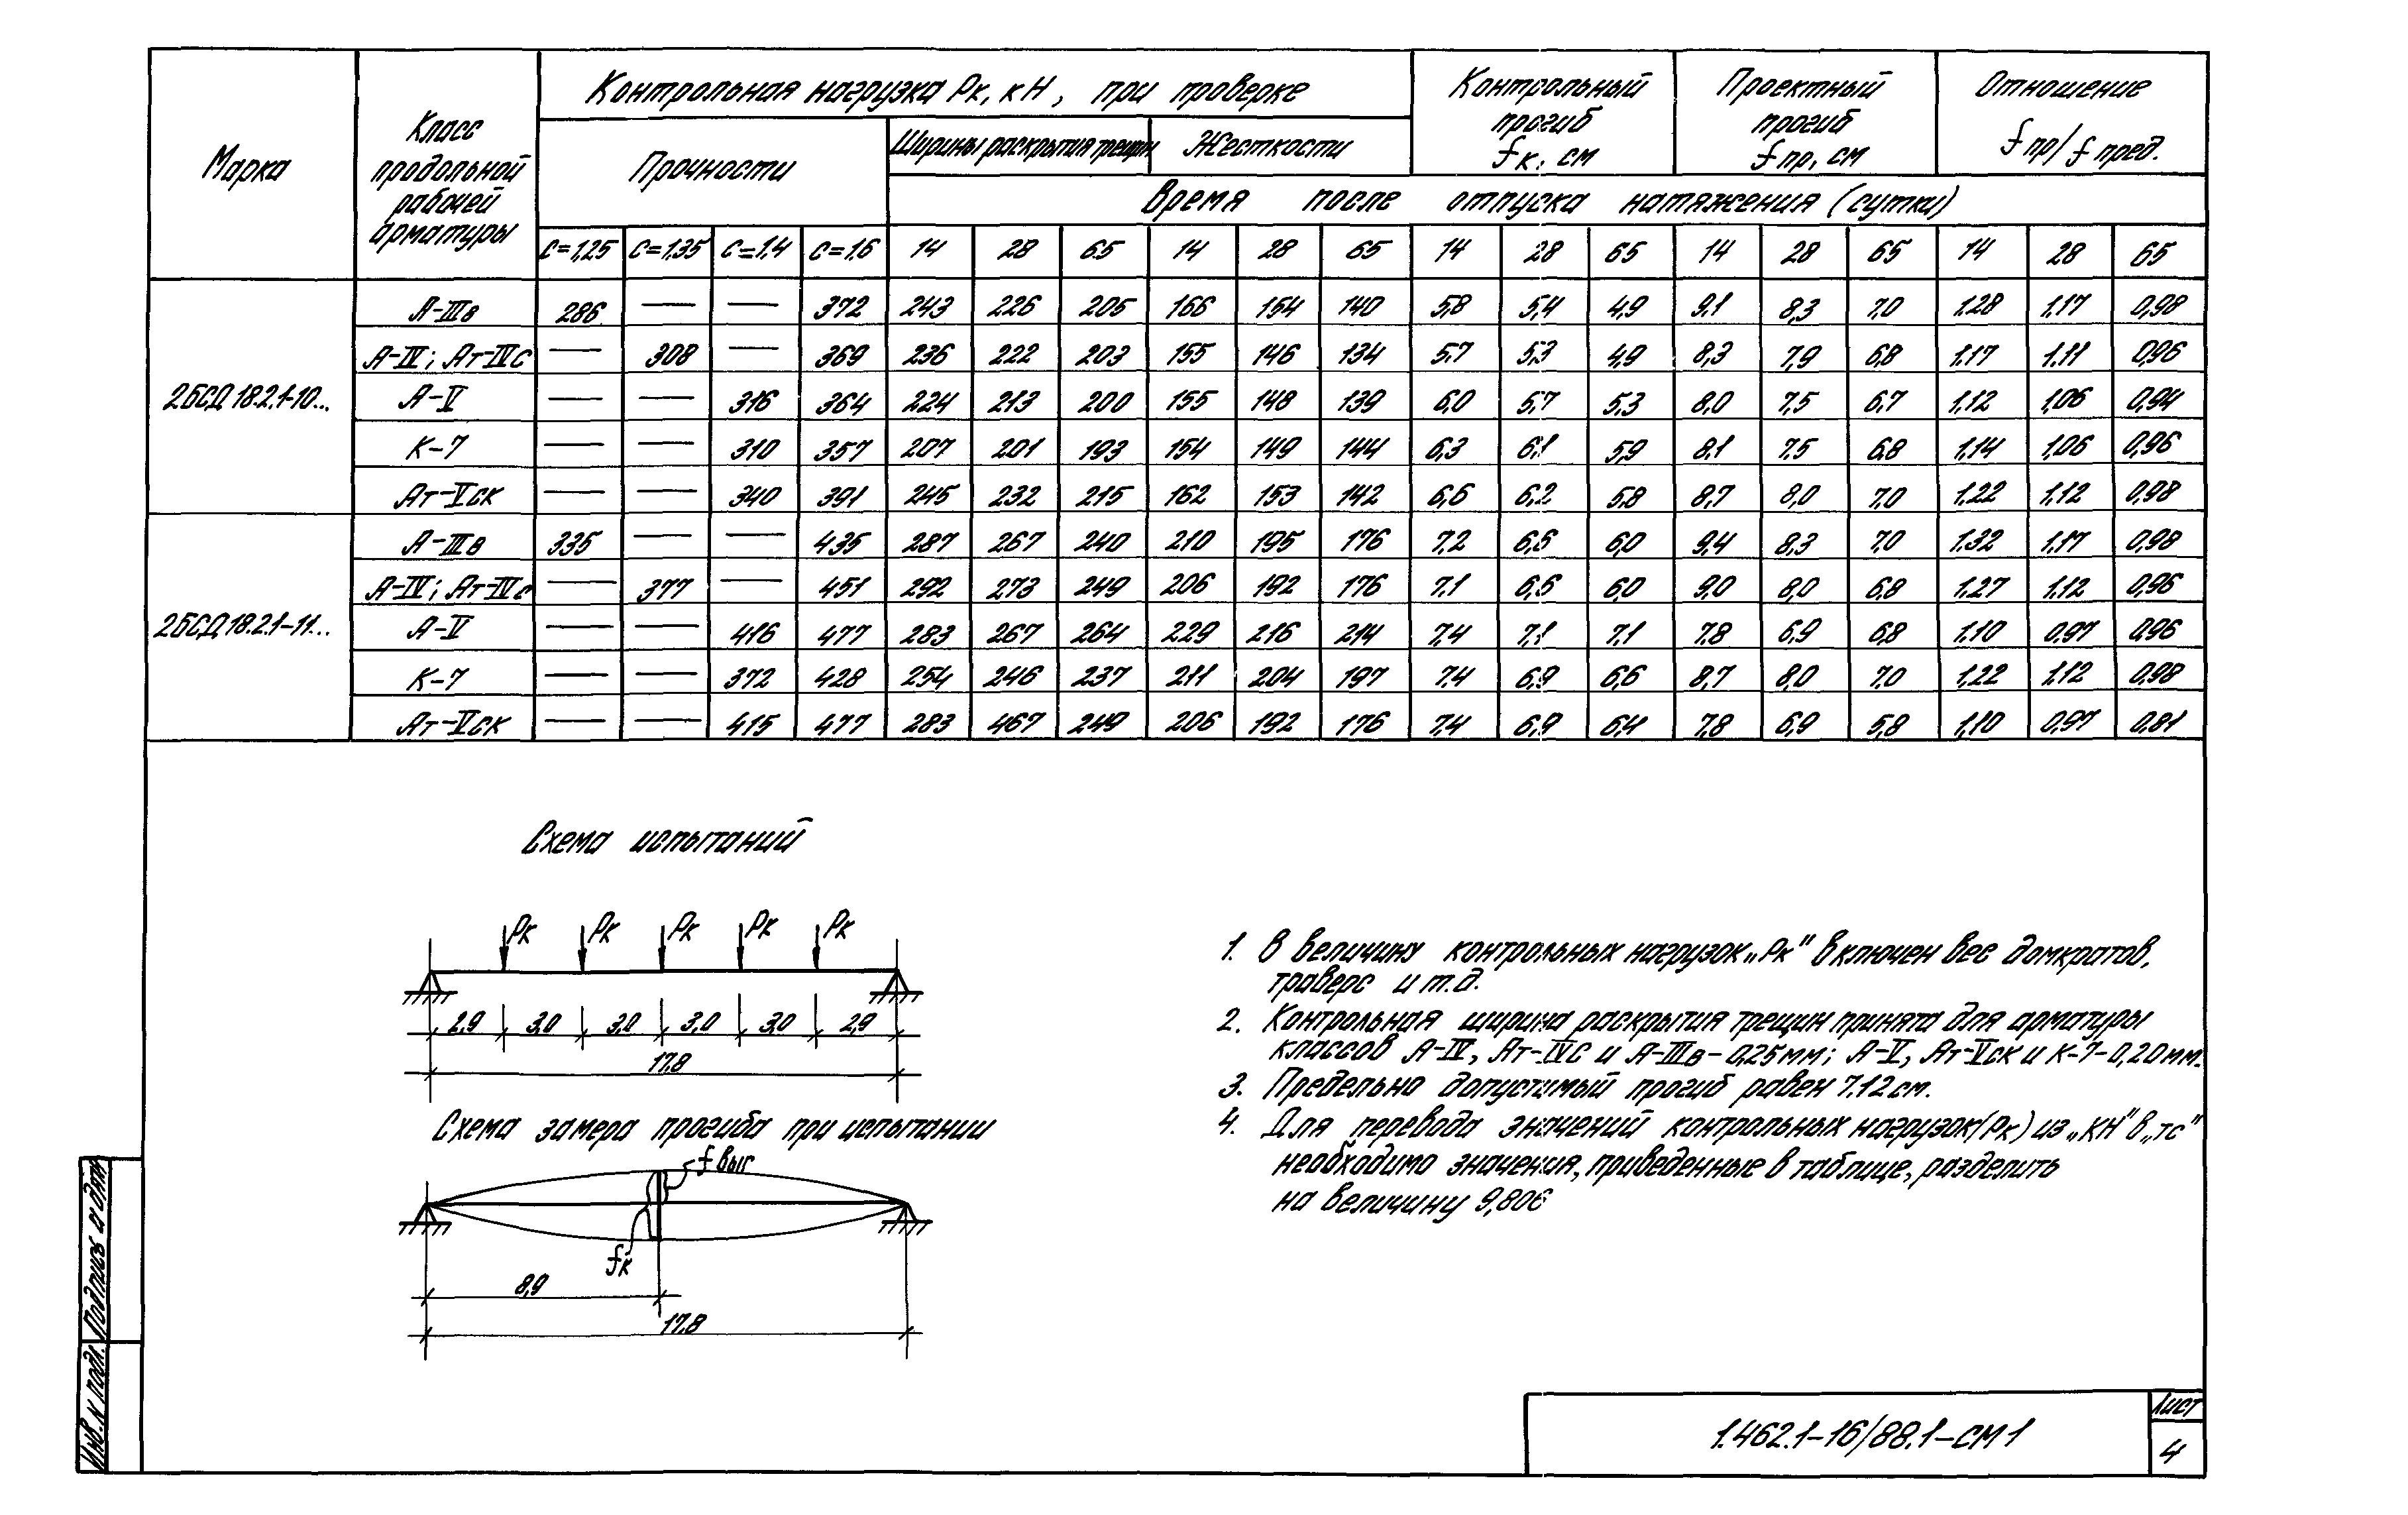 Марка
Класс
продольной
рабочей
арматуры
Контрольная нагрузка Рк, кН, при проверке
Прочности
Ширины раскрытия трещин
Жесткости
Контрольный
прогиб
fк, см
Проектный
прогиб
fпр, см
Отношение
fпр/fпред.
Время после отпуска натяжения (сутки)
С=1,25 С=1,35 С=1,4 С=1,6 14 28 65 14 28 65 14 28 65 14 28 65 14 28 65
2БСД18.2.1-10...
А-IIIв 286 — — 372 243 226 205 166 154 140 5,8 5,4 4,9 9,1 8,3 7,0 1.28 1.17 0,98
А-IV; Ат-IVс — 308 — 369 236 222 203 155 146 134 5.7 5,3 4,9 8,3 7,9 6,8 1.17 1.11 0,96
А-V — — 316 364 224 213 200 155 148 139 6,0 5,7 5.3 8,0 7,5 6,7 1,12 1,06 0,94
К-7 — — 310 357 207 201 193 154 149 144 6,3 6,1 5,9 8,1 7.5 6,8 1,14 1,06 0,96
Ат-Vск — — 340 391 245 232 215 162 153 142 6,6 6,2 5,8 8,7 8,0 7,0 1.22 1.12 0,98
2БСД18.2.1-11...
А-IIIв 335 — — 435 287 267 240 210 195 176 7,2 6,6 6,0 9,4 8,3 7,0 1.32 1.17 0,98
А-IV; Ат-IVс — 377 — 451 292 273 249 206 192 176 7.1 6,6 6,0 9,0 8,0 6,8 1.27 1.12 0,96
А-V — — 416 477 283 267 264 229 216 214 7,4 7,1 7.1 7.8 6,9 6,8 1.10 0,97 0,96
К-7 — — 372 428 254 246 237 211 204 197 7,4 6,9 6,6 8,7 8,0 7,0 1,22 1.12 0,98
Ат-Vск — — 415 477 283 467 249 206 192 176 7,4 6,9 6,4 7,8 6,9 5,8 1,10 0,97 0,81
Схема испытаний
Рк Рк Рк Рк Рк
2,9 3,0 3,0 3,0 3,0 2,9
17.8
Схема замера прогиба при испытании
f выг
fк
8,9
17.8
1. В величину контрольных нагрузок „Рк" включен вес домкратов,
траверс и т.д.
2. Контрольная ширина раскрытия трещин принята для арматуры
классов А-IV, Ат-IVС и А-IIIв-0,25мм; А-V, Ат-Vск и К-7-0,20мм.
3. Предельно допустимый прогиб равен 7.12см.
4. Для перевода значений контрольных нагрузок(Рк) из „КН" в „тс"
необходимо значения, приведенные в таблице, разделить
на величину 9,806
Подпись и дата
Инв. N подл.
1.462.1-16/88.1-СМ1
Лист
4